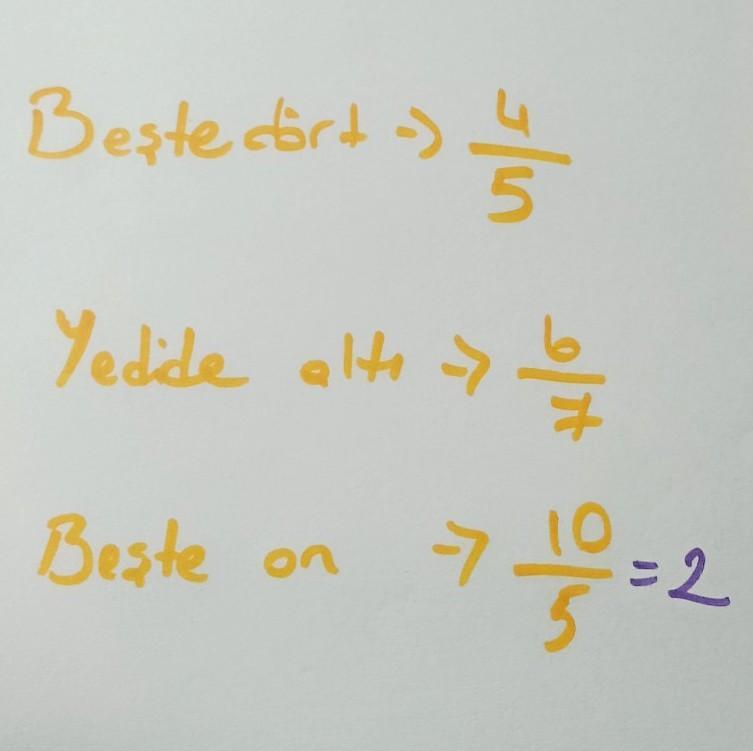 Beşte dört -> 4/5
Yedide altı -> 6/7
Beşte on -> 10/5 = 2